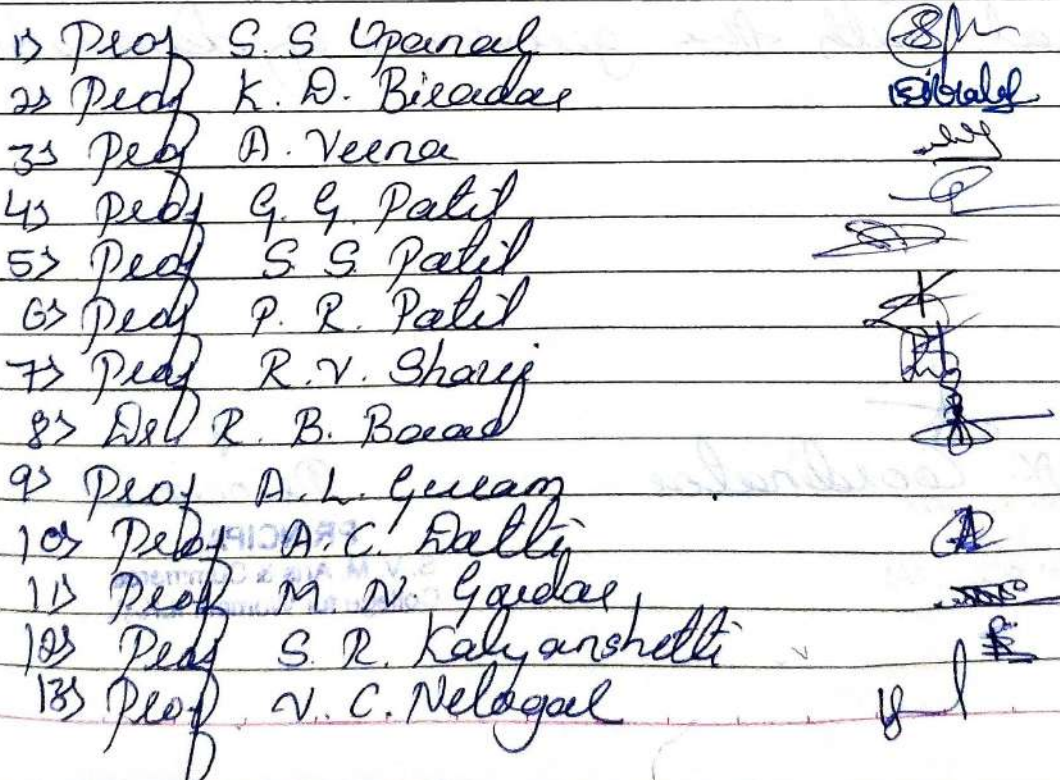 1> Prof S. S Upanal
2> Prof K. D. Biradar
3> Prof A. Veena
4> Prof G. G. Patil
5> Prof S. S. Patil
6> Prof P. R. Patil
7> Prof R. V. Sharif
8> Dr. R. B. Barad
9> Prof A. L. Guram
10> Prof A. C. Datti
11> Prof M. N.
12> Prof S. R. Kalyanshetti
13> Prof V. C. Nelogal